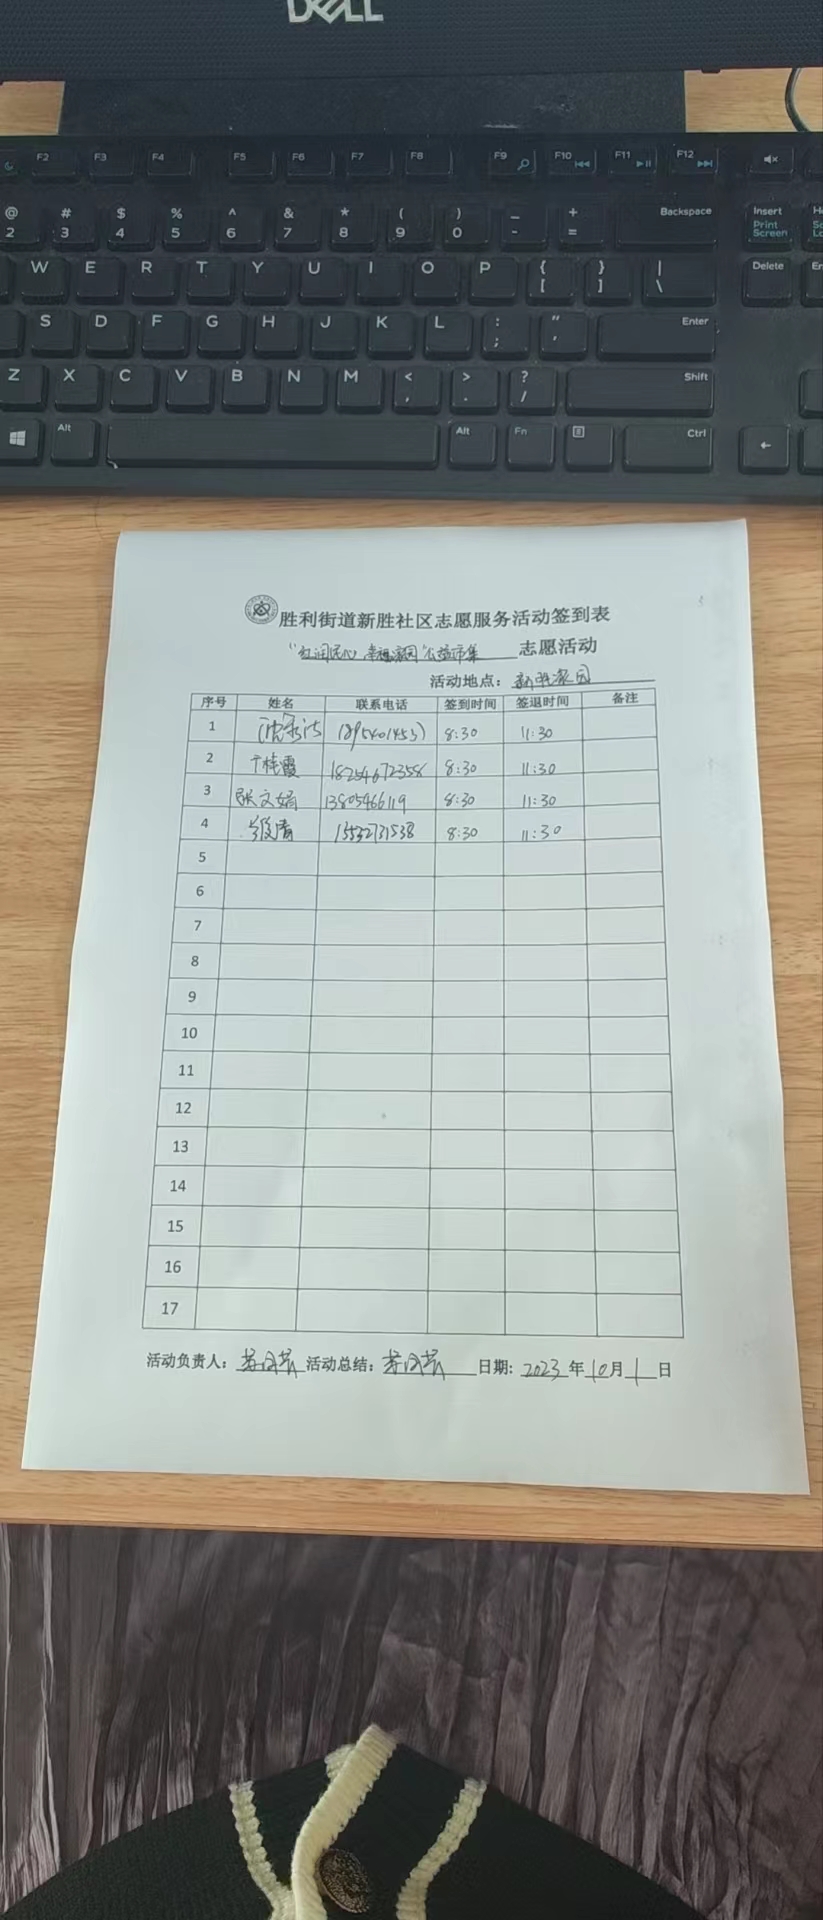 DELL
F2 F3 F4 F5 F6 F7 F8 F9 F10 F11 F12
@ # $ % ^ & * ( ) _ + Backspace Insert
2 3 4 5 6 7 8 9 0 - = Print Screen
W E R T Y U I O P { } | Delete
[ ] \
S D F G H J K L : " Enter
; '
Z X C V B N M < > ? Shift
, . /
Alt Alt Fn Ctrl
胜利街道新胜社区志愿服务活动签到表
"红润民心 幸福家园"公益市集 志愿活动
活动地点: 新胜家园
序号 姓名 联系电话 签到时间 签退时间 备注
1 8:30 11:30
2 18254672358 8:30 11:30
3 张文娟 13805466119 8:30 11:30
4 8:30 11:30
5
6
7
8
9
10
11
12
13
14
15
16
17
活动负责人: 活动总结: 日期: 2023年10月1日